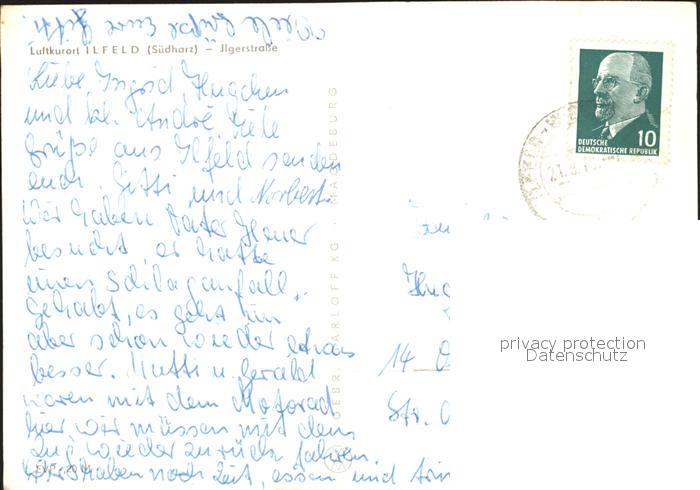 Viele Grüße Eure Gitti
Luftkurort ILFELD (Südharz) – Jlgerstraße
Liebe Ingrid, Hugchen
und kl. André, Viele
Grüße aus Ilfeld senden
euch Gitti und Norbert.
Wir haben Vater
besucht, er hatte
einen Schlaganfall
gehabt, es geht ihm
aber schon wieder etwas
besser. Mutti u. Gerald
waren mit dem Motorad
hier, wir müssen mit dem
Zug wieder zurück fahren.
Wir haben noch Zeit, essen und trin
GEBR. GARLOFF KG · MAGDEBURG
10
DEUTSCHE
DEMOKRATISCHE REPUBLIK
Fam
14
Str.
privacy protection
Datenschutz